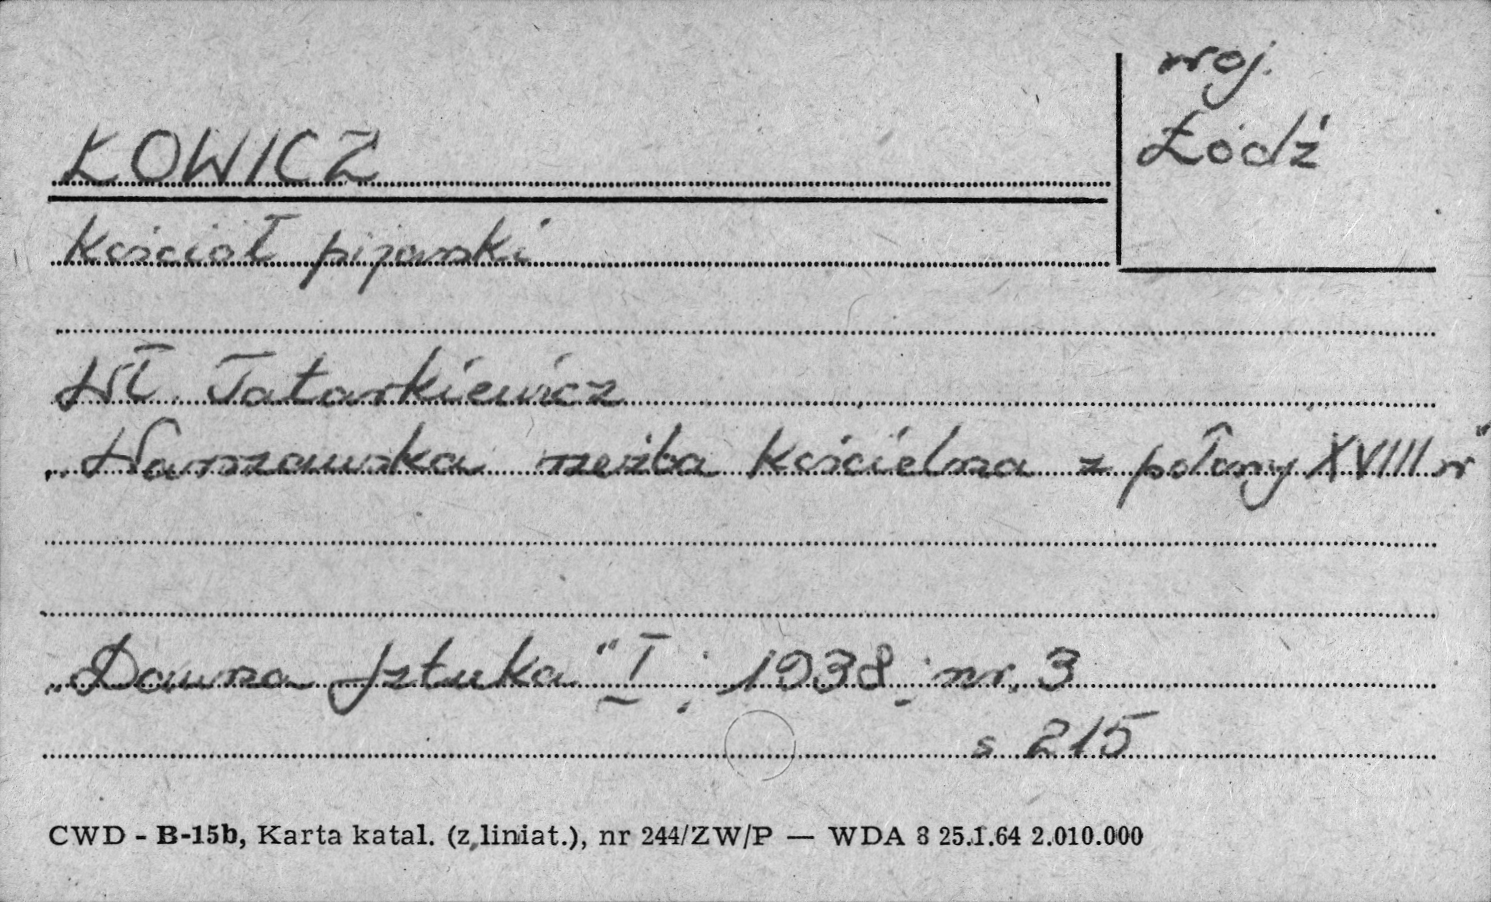 ŁOWICZ
woj.
Łódź
kościół pijarski
Wł. Tatarkiewicz
„Warszawska rzeźba kościelna z połowy XVIII w"
„Dawna Sztuka" I ; 1938 ; nr. 3
s 215
CWD - B-15b, Karta katal. (z liniat.), nr 244/ZW/P — WDA 8 25.1.64 2.010.000